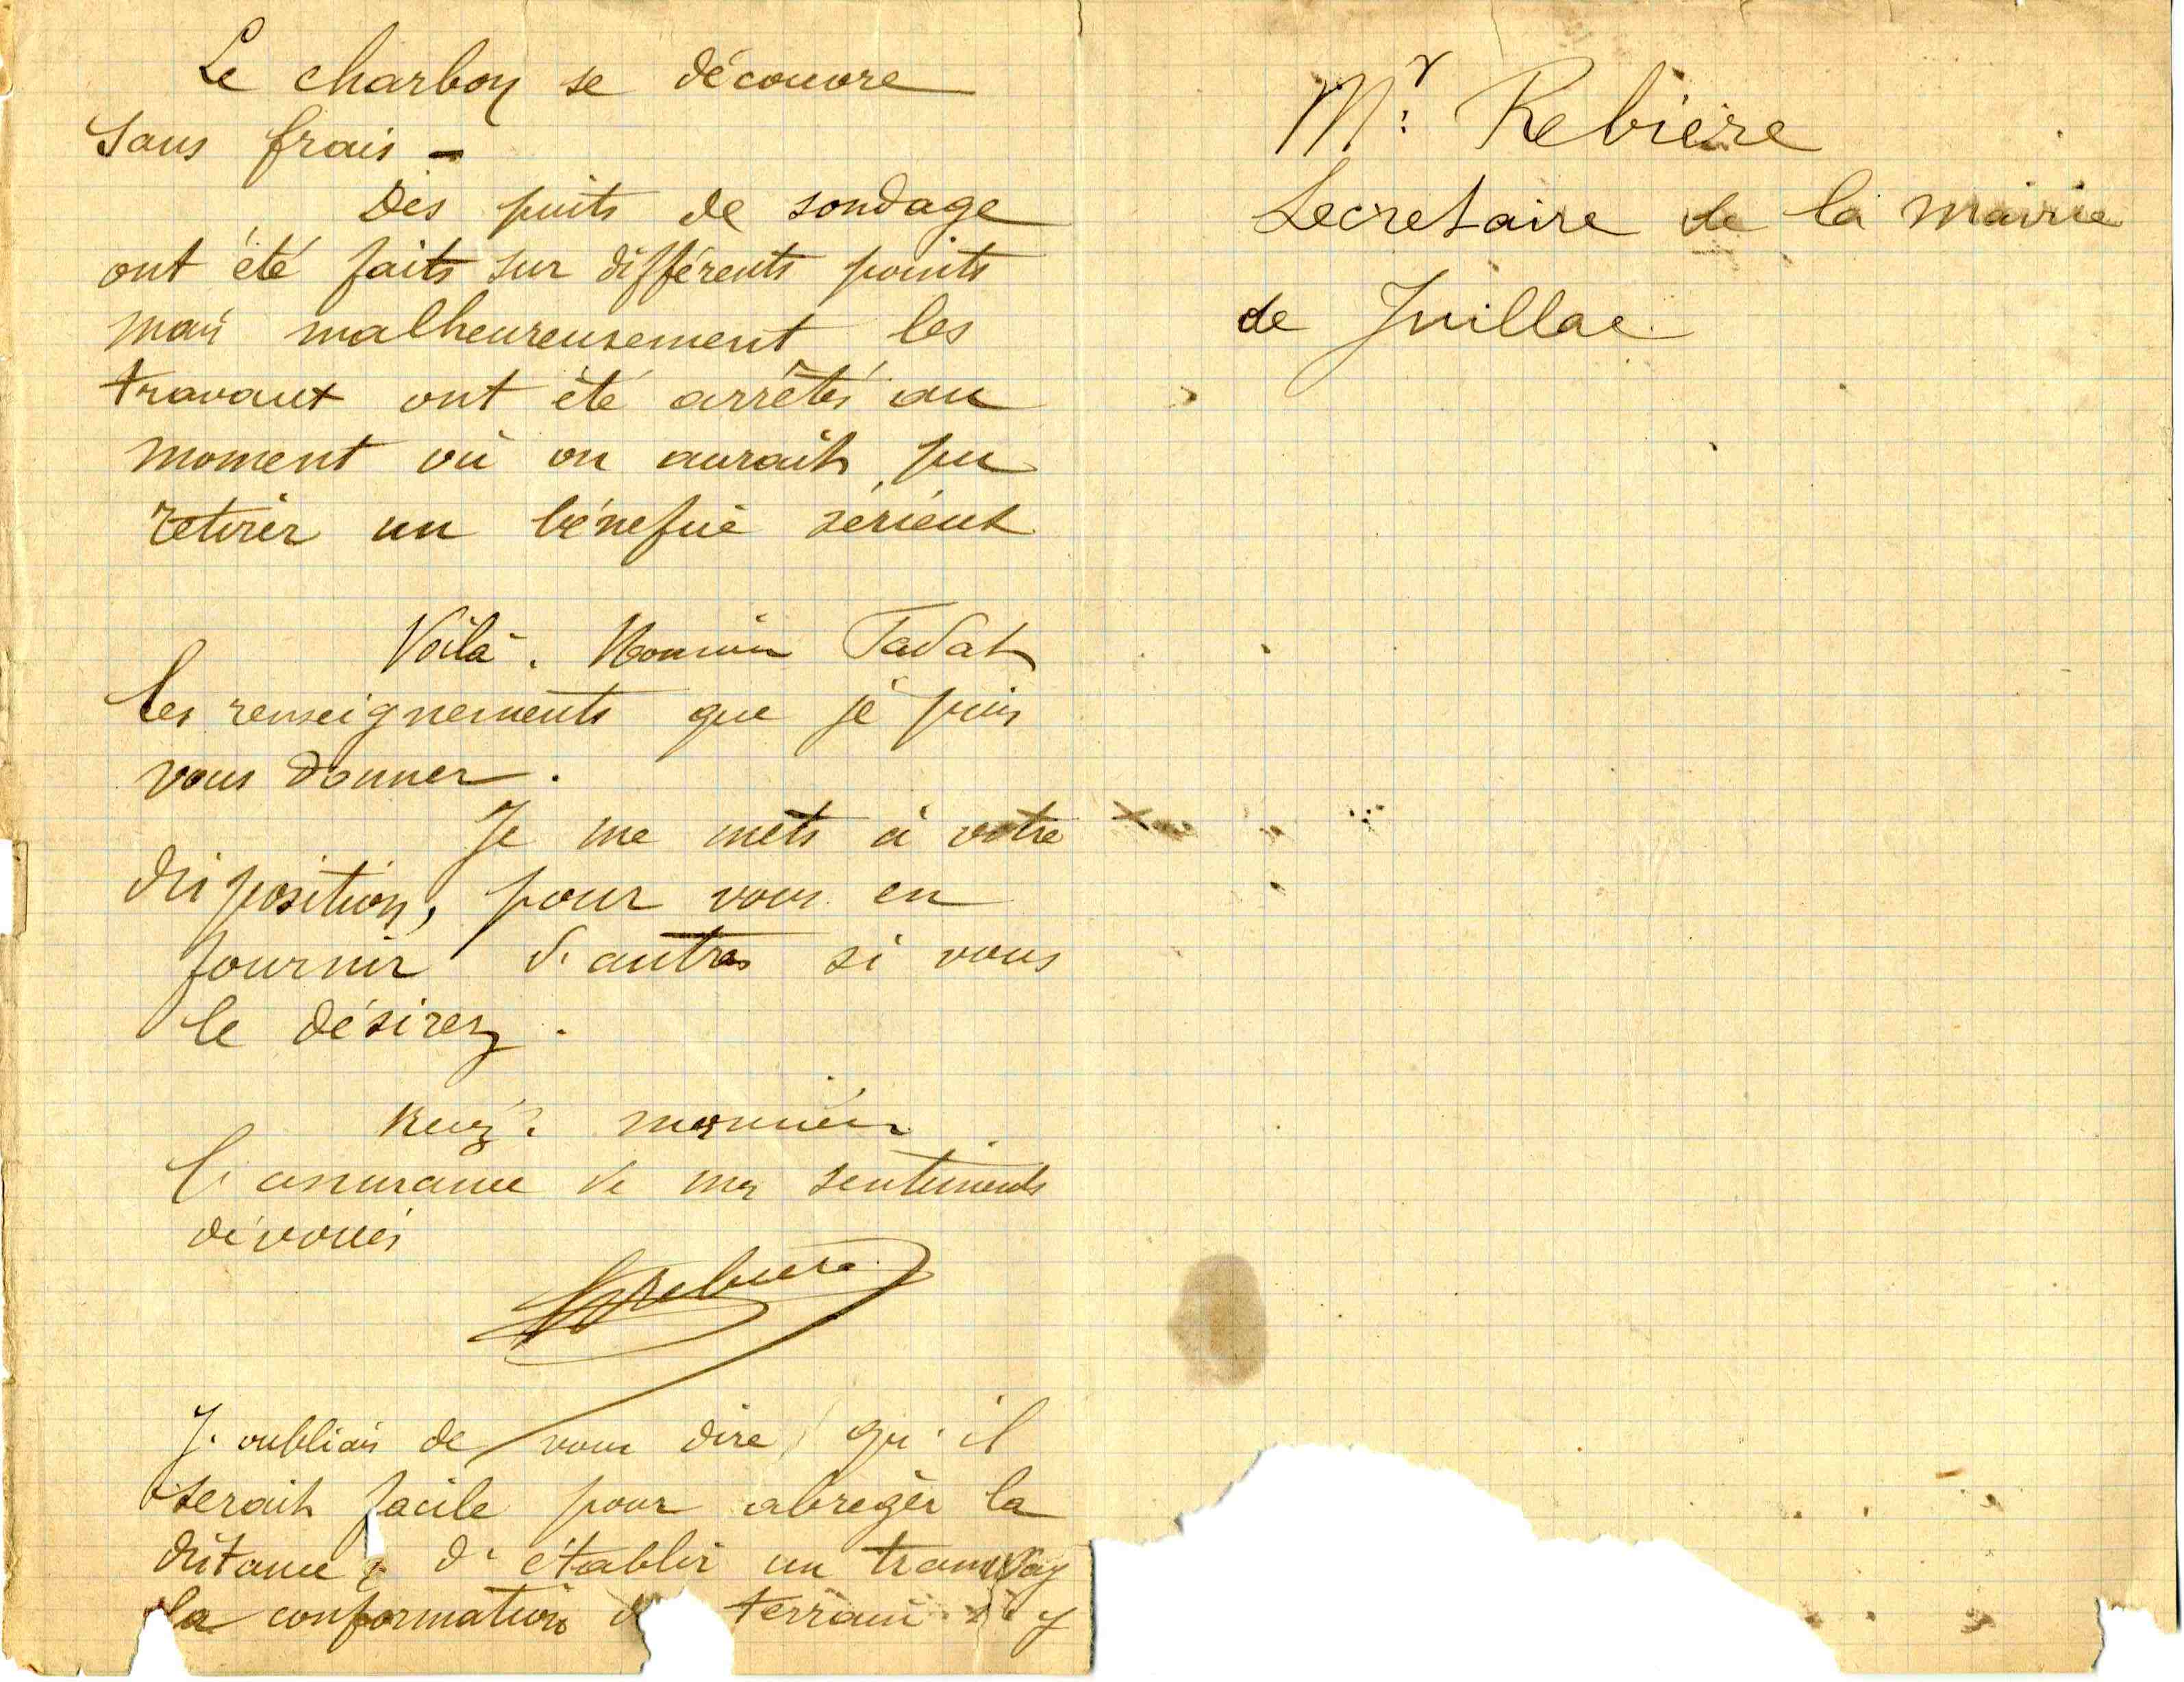 Le charbon se découvre
sans frais -
Des puits de sondage
ont été faits sur différents points
mais malheureusement les
travaux ont été arrêtés au
moment où on aurait pu
retirer un bénéfice sérieux
Voilà. Monsieur Tadat
les renseignements que je puis
vous donner.
Je me mets à votre
disposition, pour vous en
fournir d'autres si vous
le désirez.
Recevez monsieur
l'assurance de mes sentiments
dévoués
Rebière
J'oubliais de vous dire qu'il
serait facile pour abréger la
distance d'établir un tramway
la conformation d terrain s'y
Mr: Rebière
Secretaire de la mairie
de Juillac